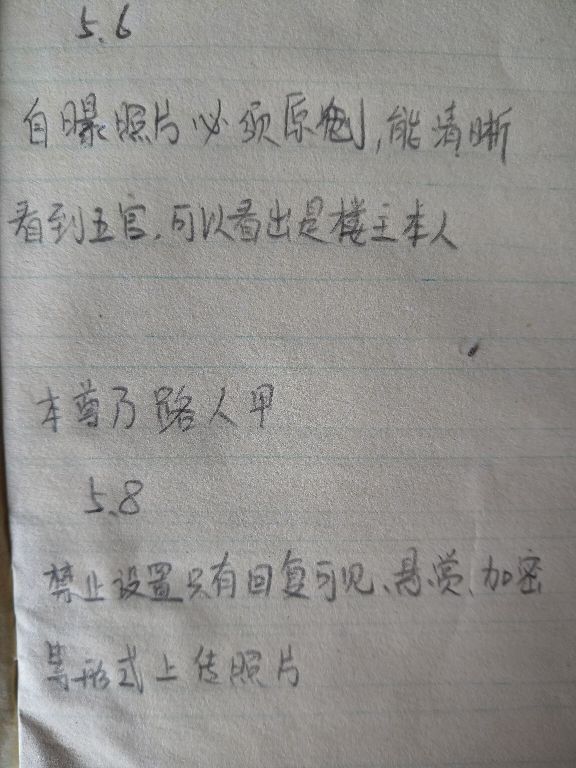 5.6
自曝照片必须原创,能清晰
看到五官,可以看出是楼主本人
本尊乃路人甲
5.8
禁止设置只有回复可见、悬赏、加密
等形式上传照片